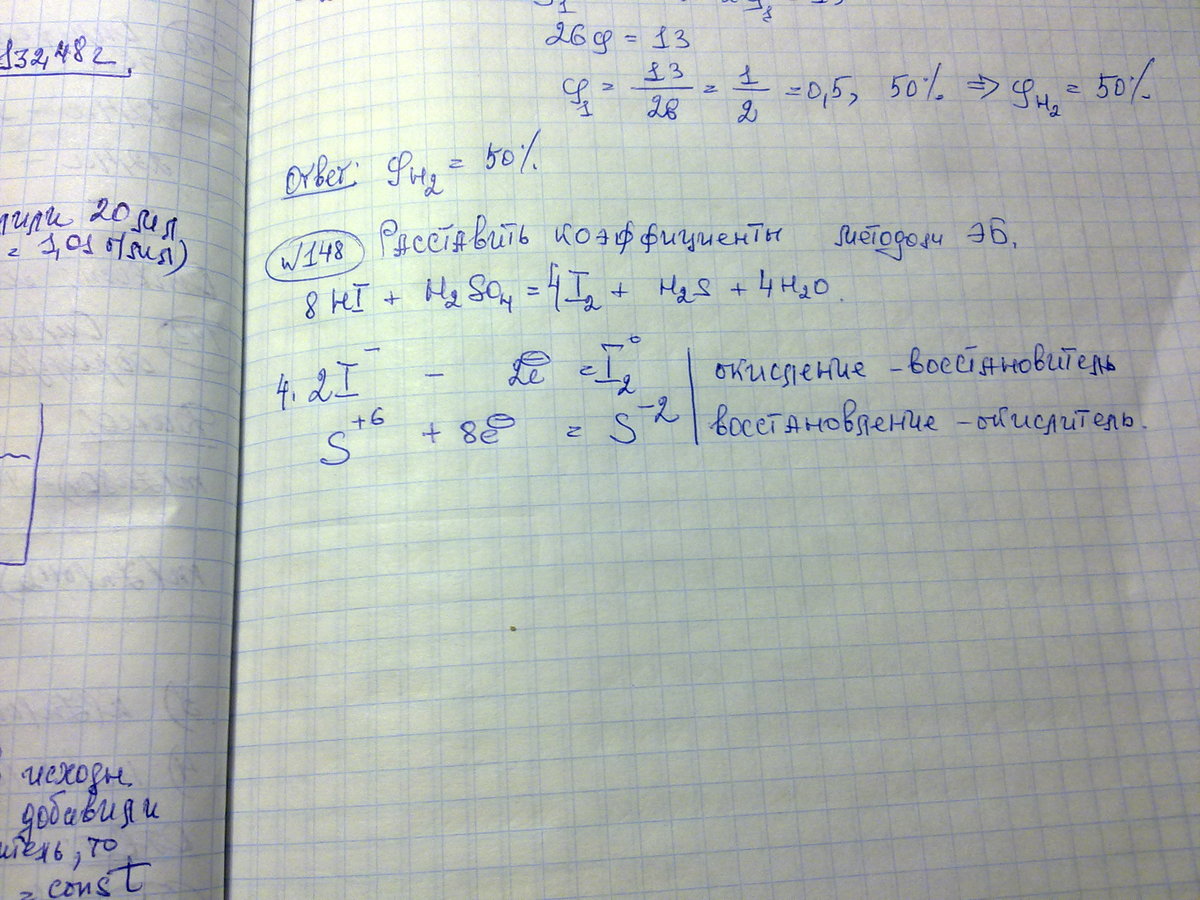 132,48 г.
20 мл
= 1,01 г/мл)
исходн.
добавили
то
= const
26φ = 13
φ₁ = 13/26 = 1/2 = 0,5, 50% ⇒ φH₂ = 50%
Ответ: φH₂ = 50%
№148 Расставить коэффициенты методом ЭБ.
8HI + H₂SO₄ = 4I₂ + H₂S + 4H₂O.
4. 2I⁻ - 2e⊖ = I₂⁰ | окисление - восстановитель
S⁺⁶ + 8e⊖ = S⁻² | восстановление - окислитель.